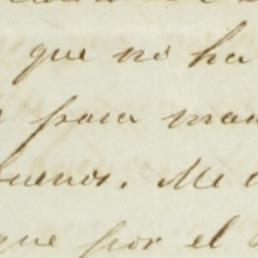 que no ha
para man
buenos. Me
que por el